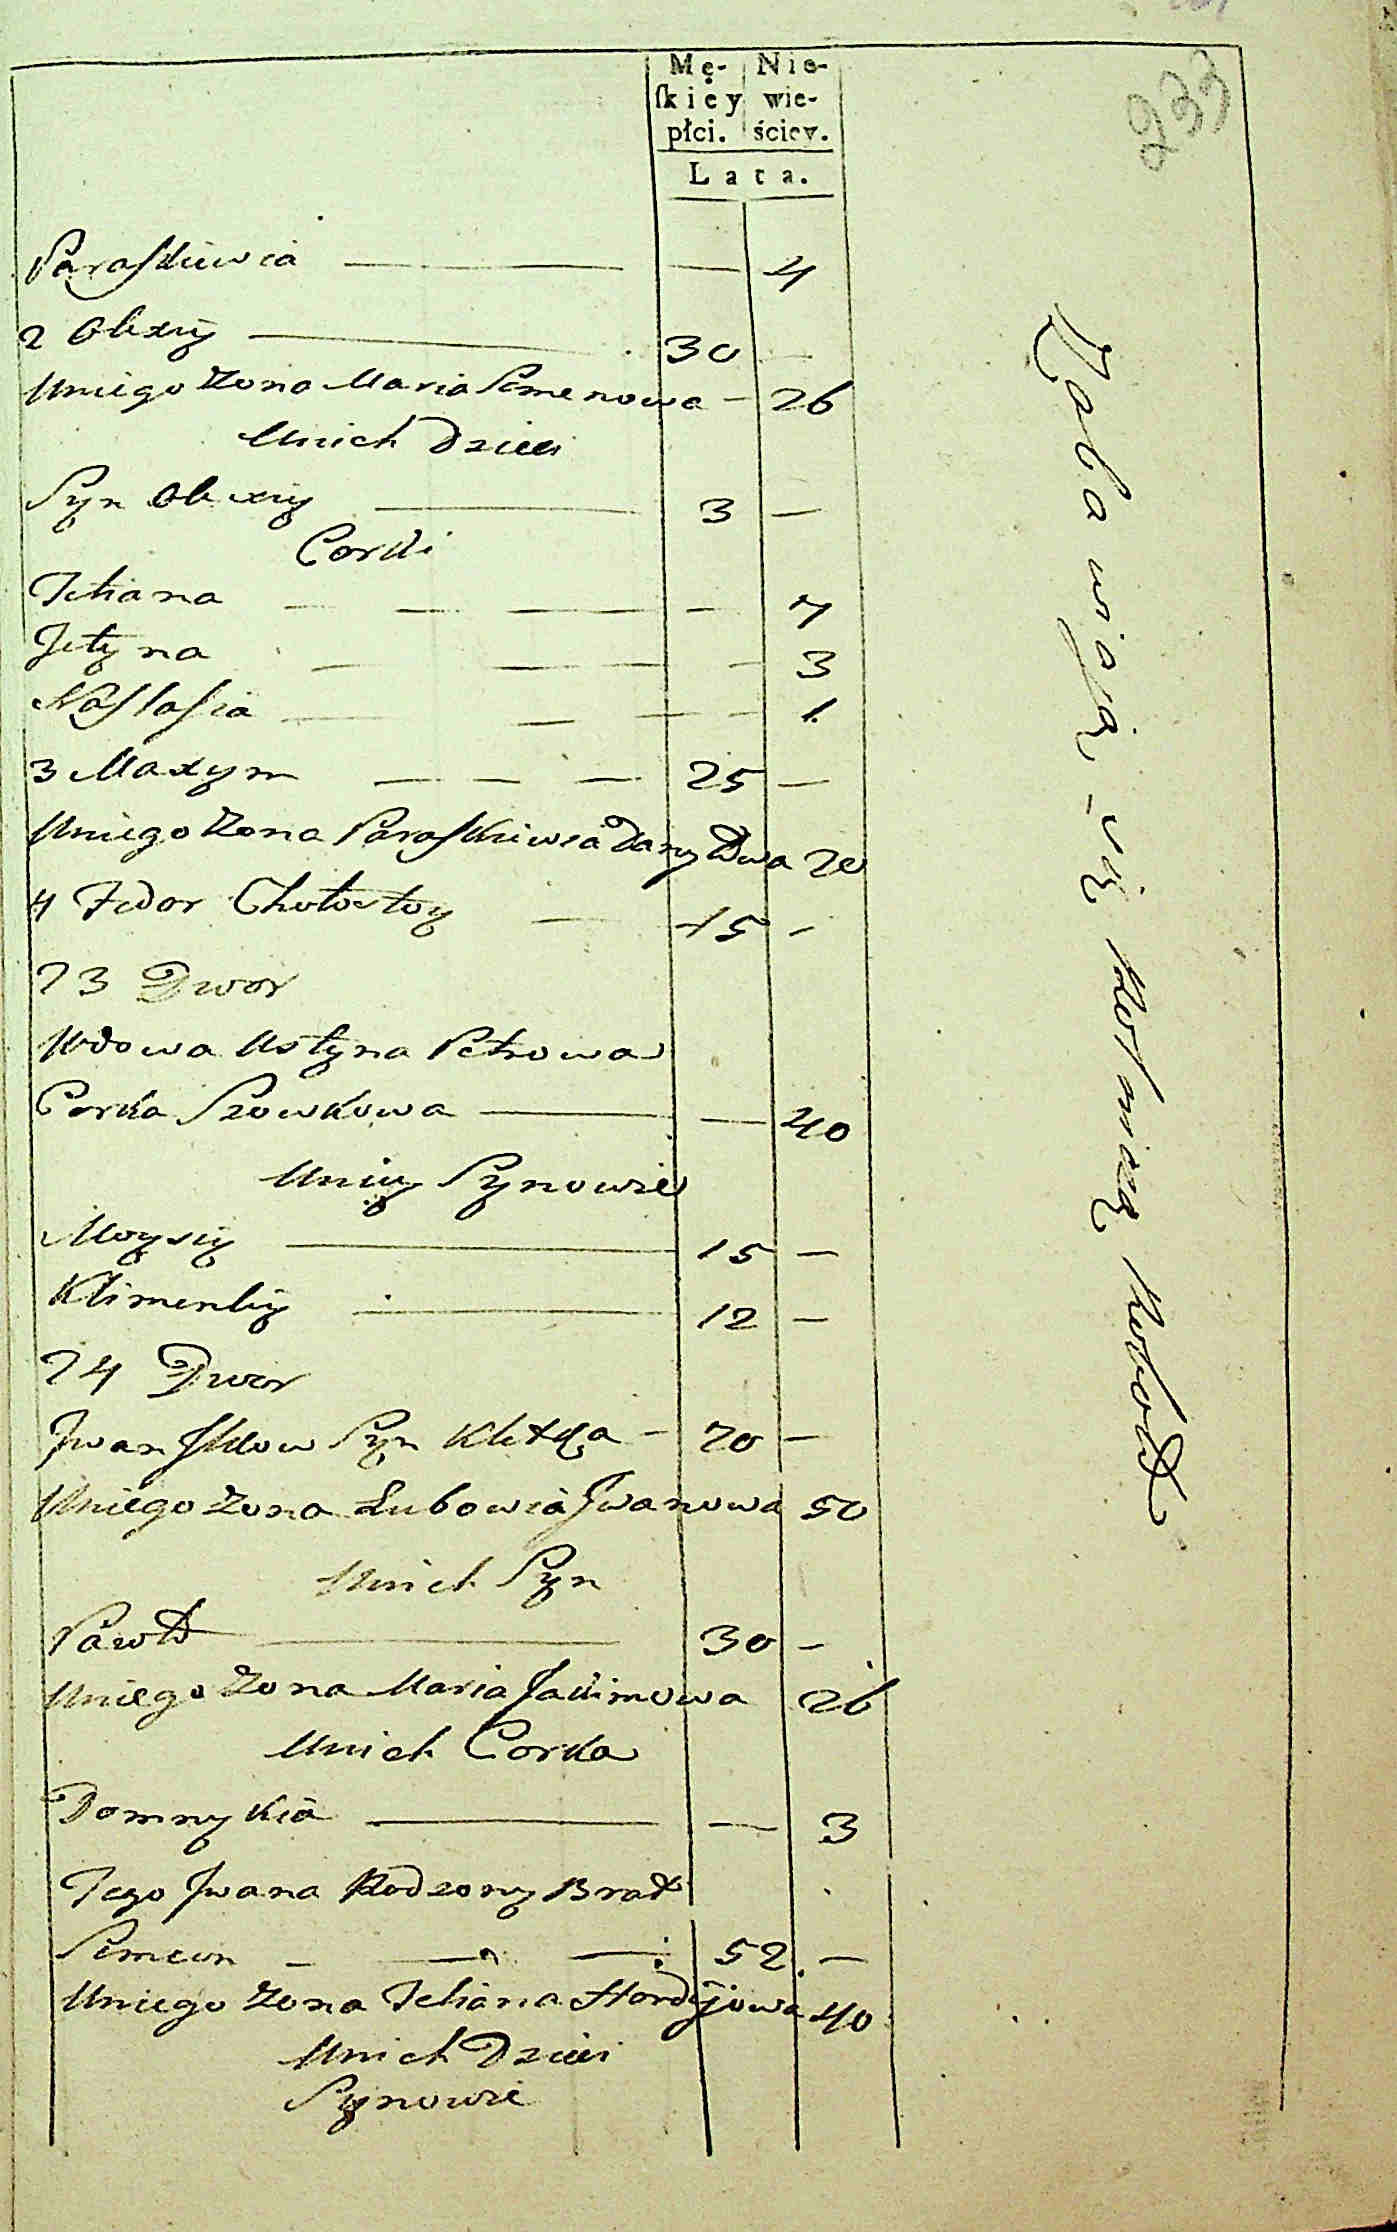 233
Mę- Nie-
ſkiey wie-
płci. ściey.
Lata.
Paraſkiewia — — 4
2 Olexiy — 30 —
Uniego Zona Maria Semenowa — 26
Unich Dzieci
Syn Olexiy — 3 —
Corki
Tetiana — — 7
Jełyna — — 3
Naſtaſia — — 1.
3 Maxym — 25 —
Uniego Zona Paraſkiewia Dany Dwa 20
4 Fedor Chołostoy — 15 —
23 Dwor
Wdowa Ustyna Petrowa
Corka Szowkowa — — 40
Uniey Synowie
Moysiy — 15 —
Klimentiy — 12 —
24 Dwor
Jwan Syn — 70 —
Uniego Zona Lubowia Jwanowa 50
Unich Syn
Paweł — 30 —
Uniego Zona Maria Jakimowa 26
Unich Corka
Domnykia — — 3
Tego Jwana Rodzony Brat
Semen — 52 —
Uniego Zona Tetiana Hordijowa 40
Unich Dzieci
Synowie
Zabawiaią się Rolniczą Robotą